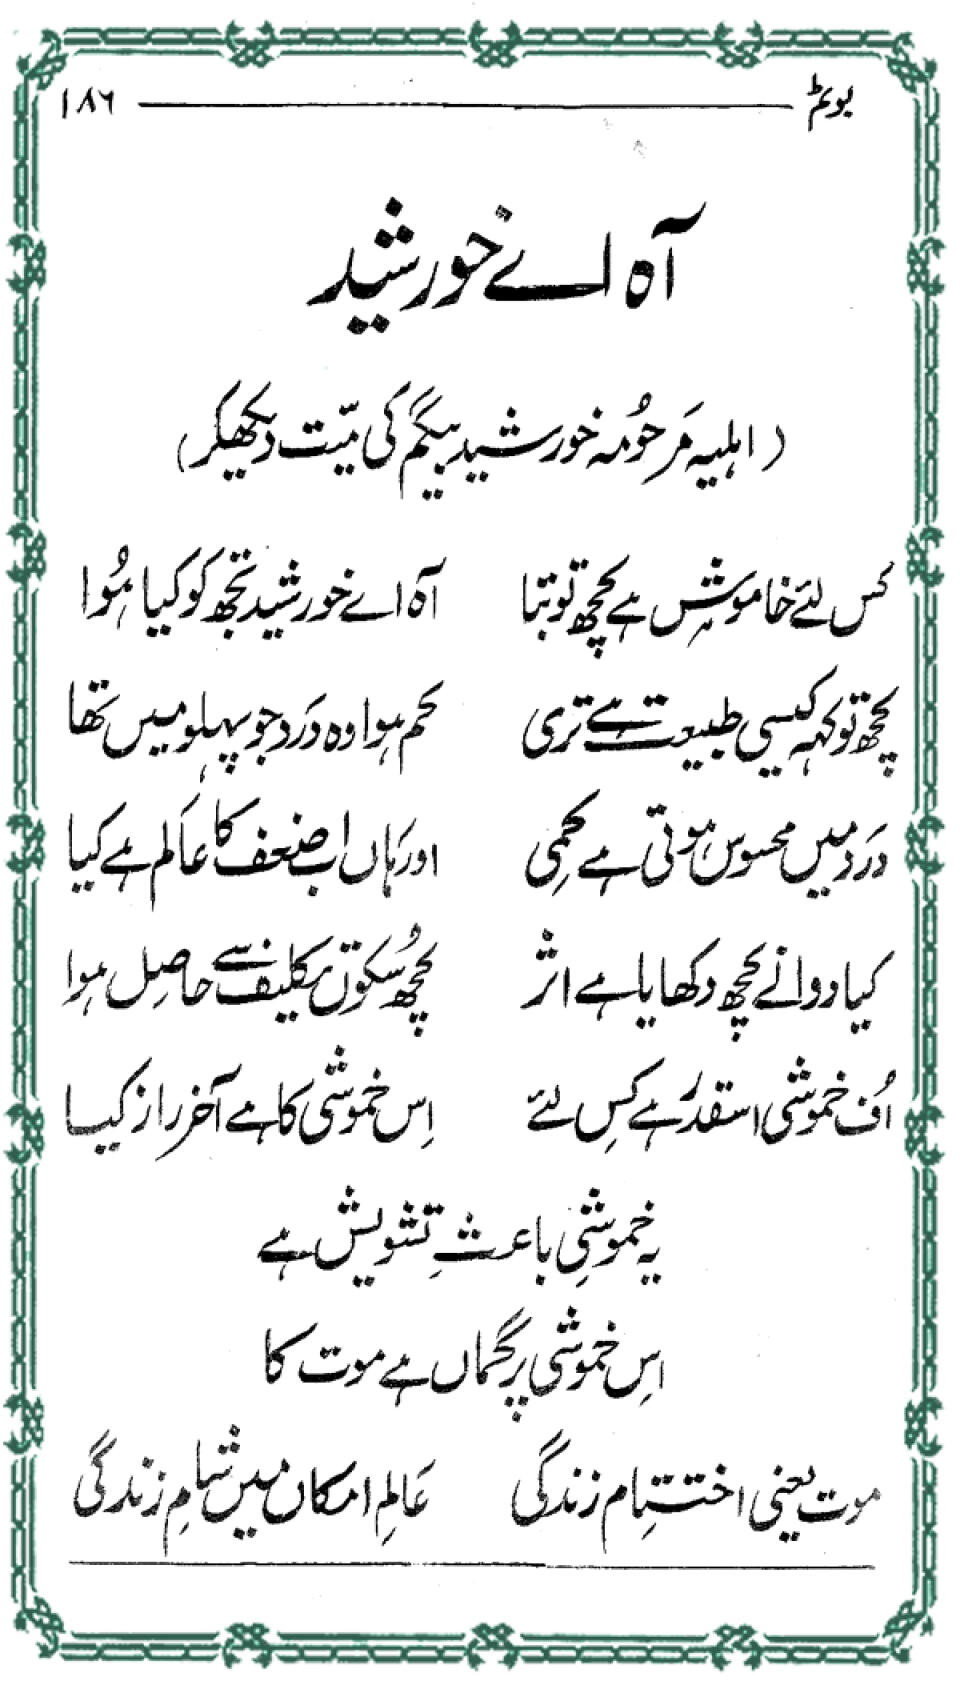 بوٹم ۱۸۶
آہ اے خورشید
(اہلیہ مَرحوُمہ خورشید بیگم کی میّت دیکھکر)
کس لئے خاموش ہے کچھ تو بتا آہ اے خورشید تجھ کو کیا ہُوا
کچھ تو کہہ کیسی طبیعت ہے تری کم ہوا وہ دَرد جو پہلو میں تھا
دَرد میں محسوس ہوتی ہے کمی اور ہَاں اب ضعف کا عَالم ہے کیا
کیا دوا نے کچھ دکھایا ہے اثر کچھ سُکوں تکلیف سے حاصِل ہوا
اُف خموشی اسقدر ہے کِس لئے اِس خموشی کا ہے آخر راز کیا
یہ خموشی باعثِ تشویش ہے
اِس خموشی پر گماں ہے موت کا
موت یعنی اختتامِ زندگی عَالمِ امکاں میں شامِ زندگی